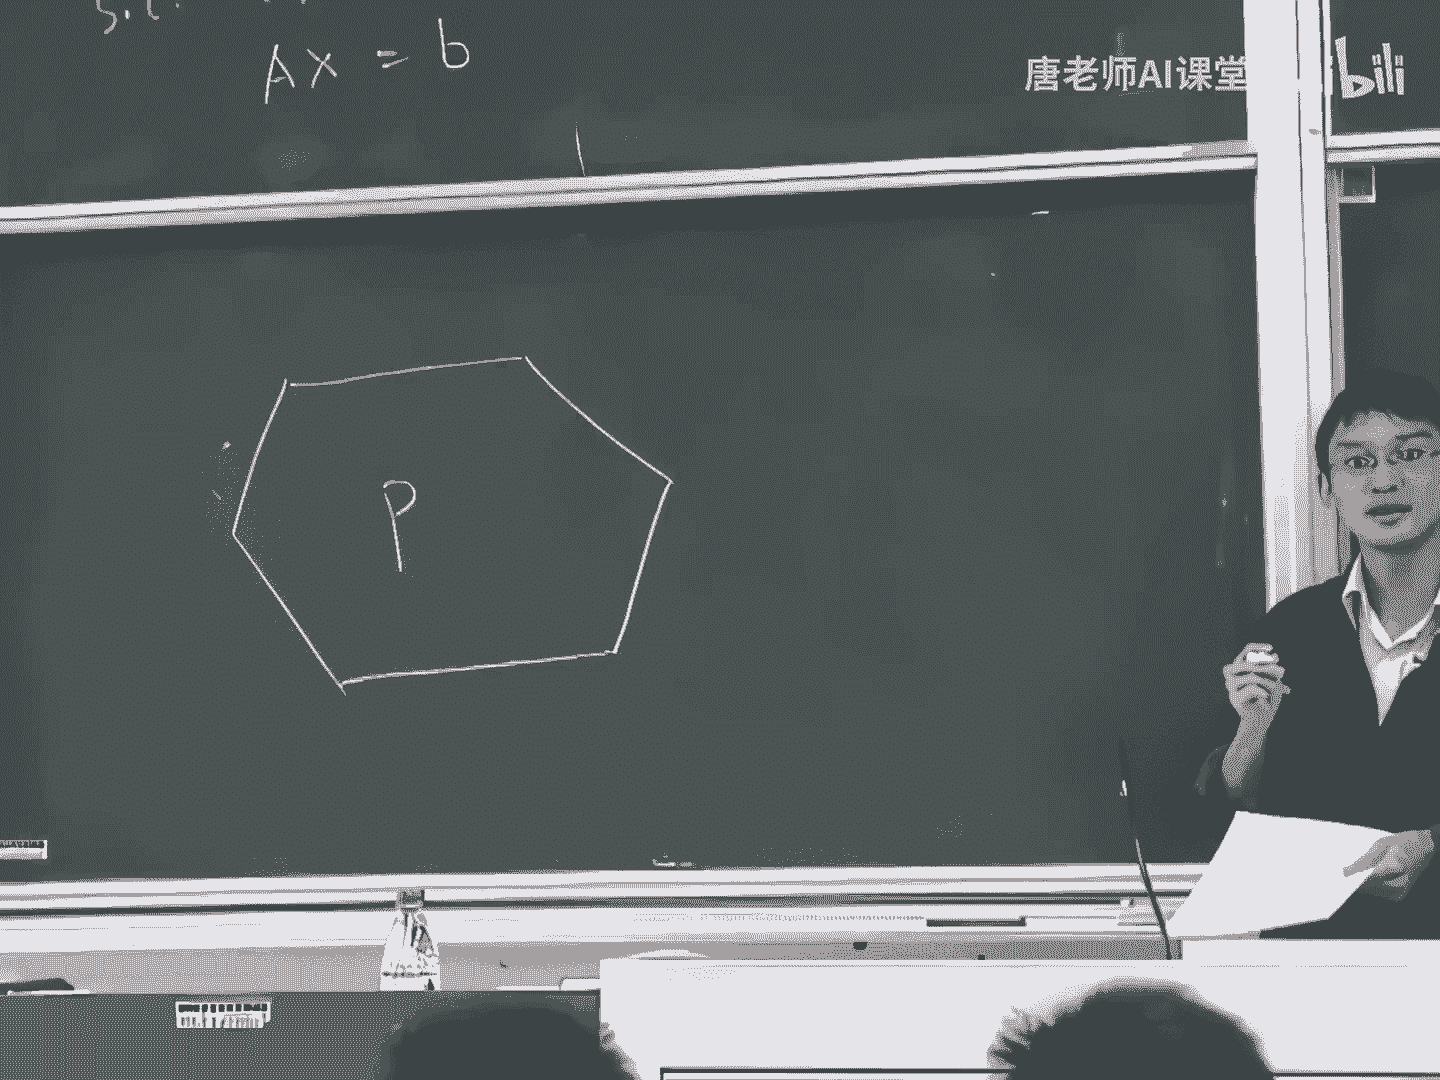 s.t.
Ax = b
唐老师AI课堂 bili
P